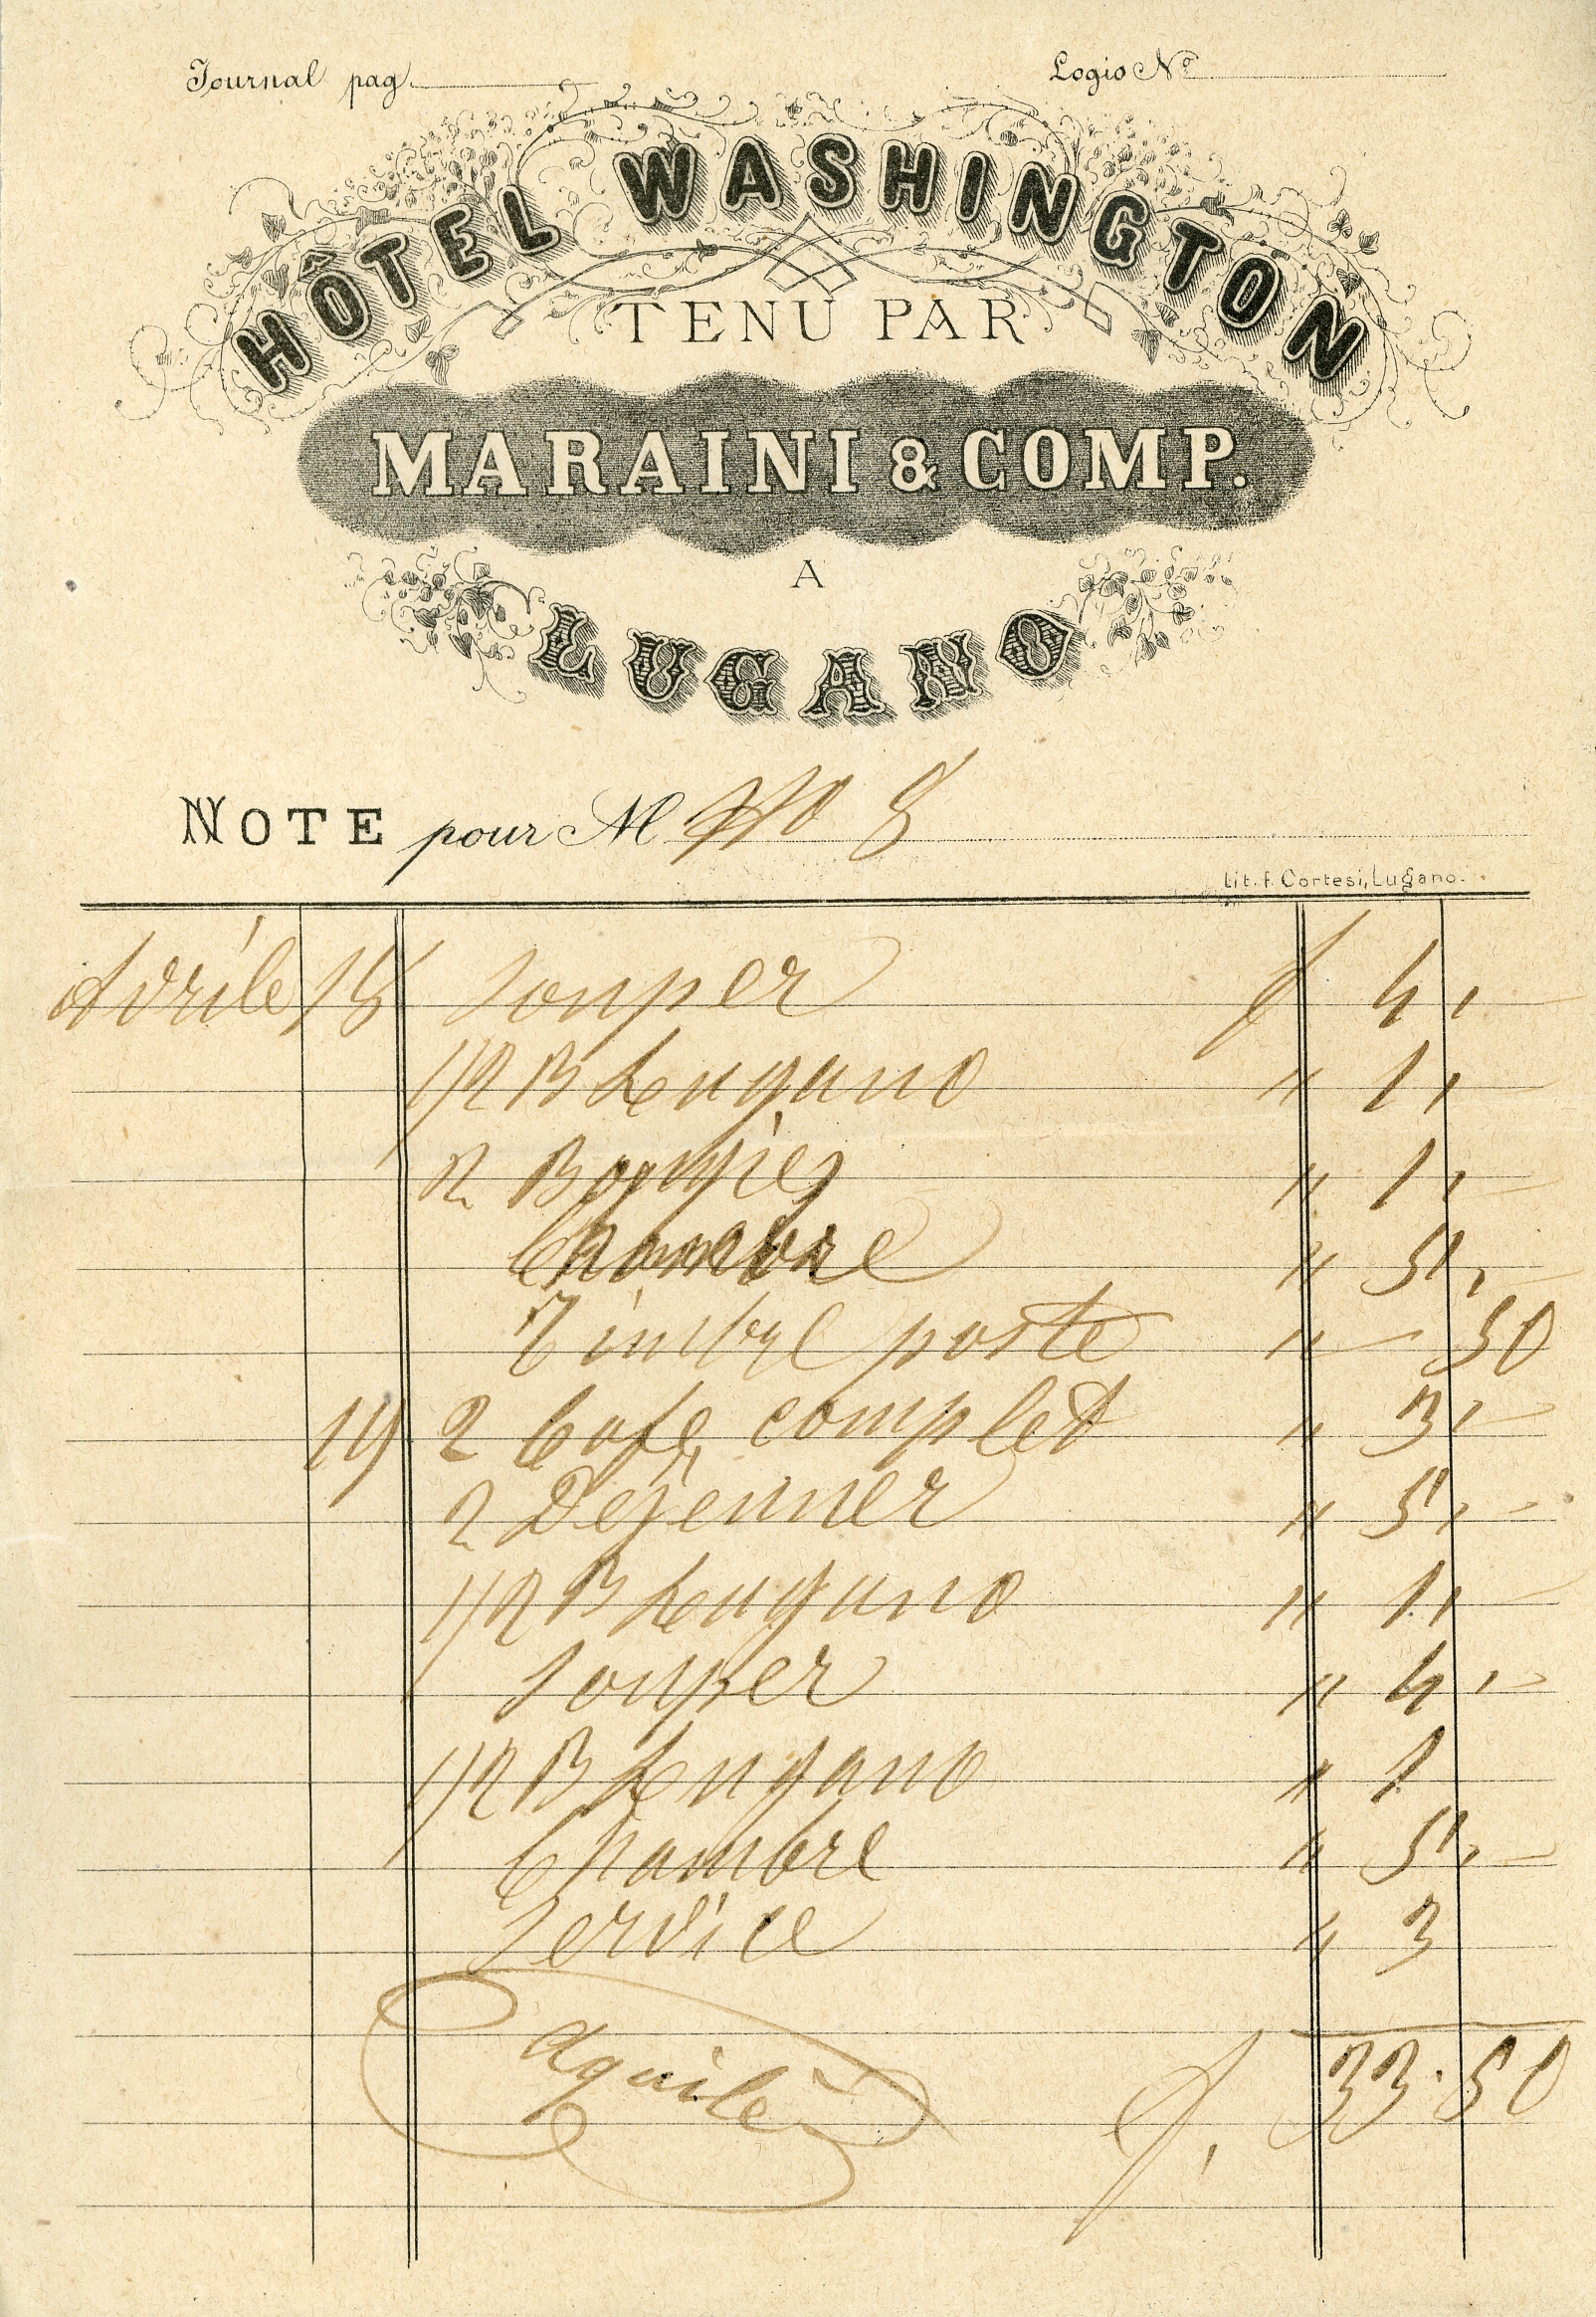 Journal pag. Logio Nº
HÔTEL WASHINGTON
TENU PAR
MARAINI & COMP.
A
LUGANO
NOTE pour M No 8
Lit. F. Cortesi, Lugano.
Avrile 18 Souper f 4,-
1/2 B Lugano " 1,-
2 Bougies " 1,-
Chambre " 5,-
Timbre poste " - 50
19 2 Cafe complet " 3,-
2 Dejeuner " 5,-
1/2 B Lugano " 1,-
Souper " 4,-
1/2 B Lugano " 1
Chambre " 5,-
Service " 3
f. 33.50